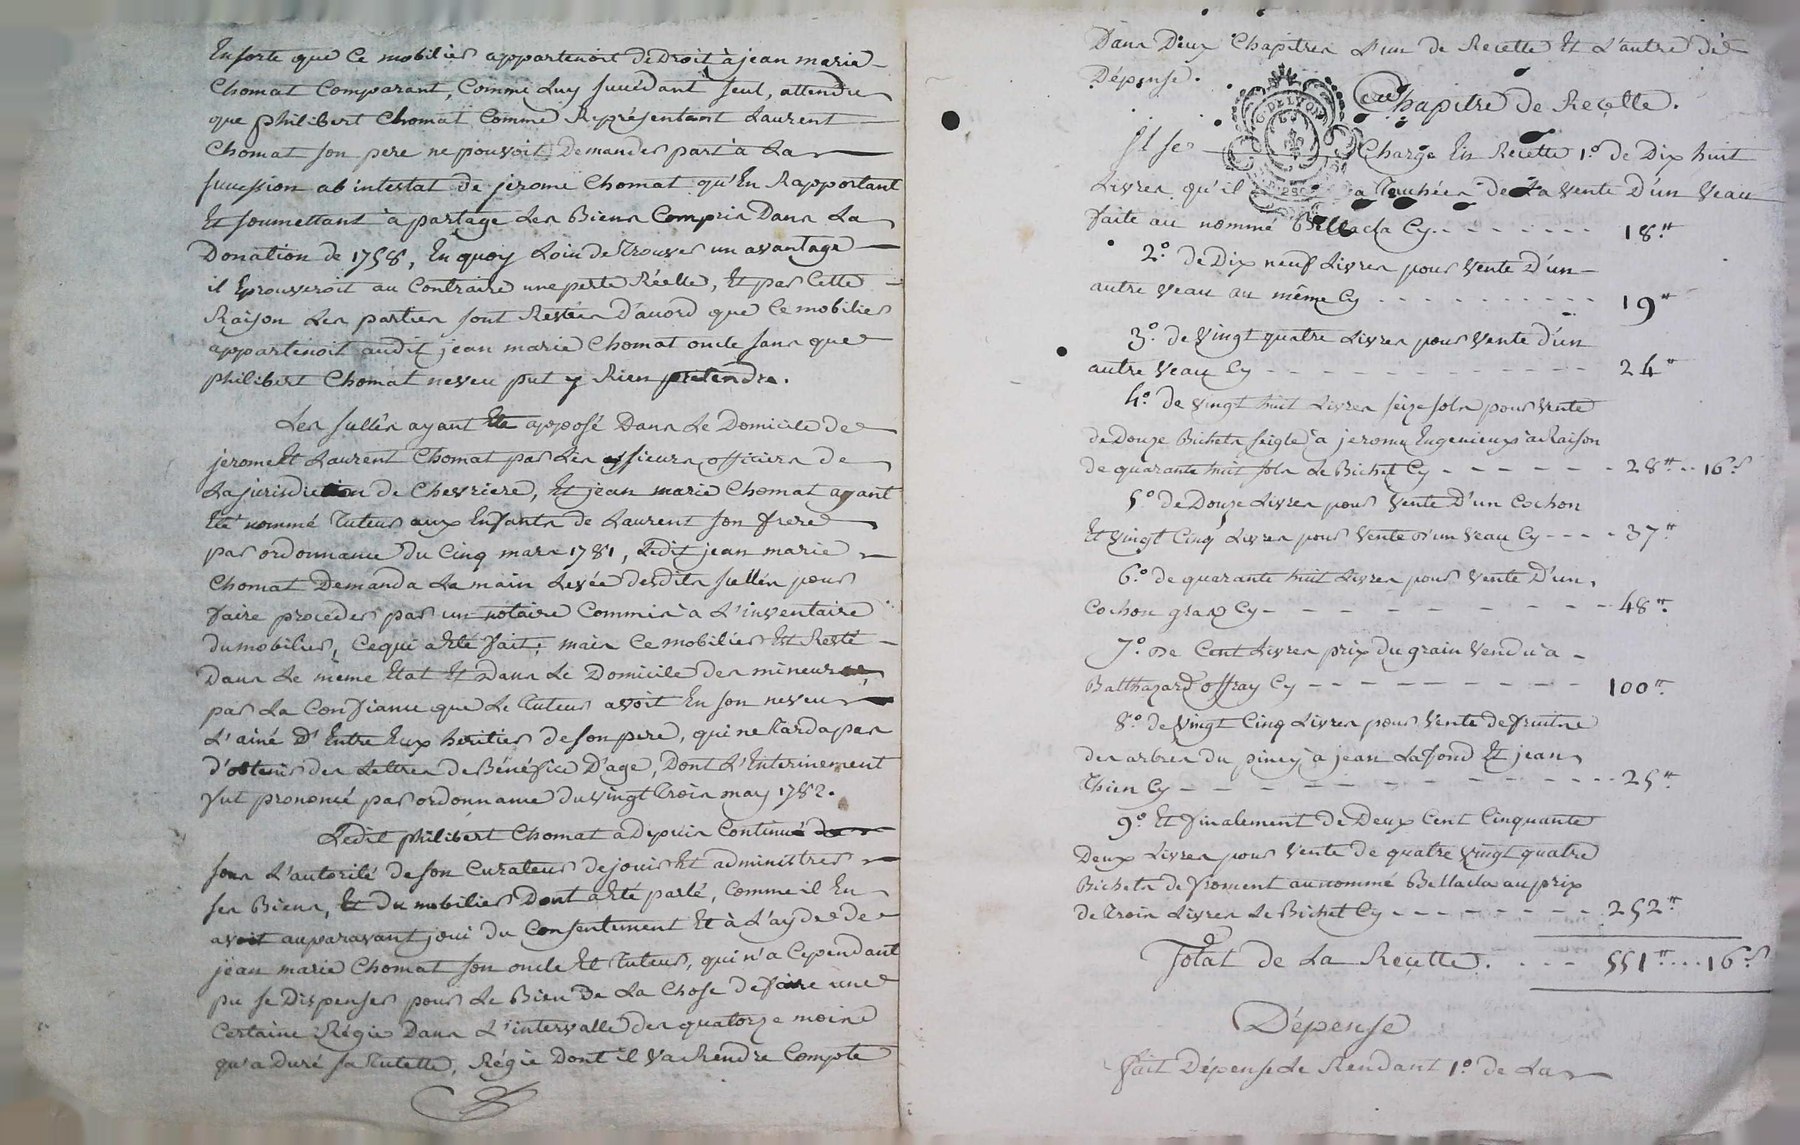 En sorte que ce mobilier appartenoit de Droit à jean marie
Chomat Comparant, Comme Luy succédant seul, attendu
que philibert Chomat Comme Représentant Laurent
Chomat son pere ne pouvoit Demander part à La
succession ab intestat de jerome Chomat qu'En Rapportant
Et soumettant à partage Les Biens Compris Dans La
Donation de 1758, En quoy Loin de Trouver un avantage
il Eprouveroit au Contraire une perte Réelle, Et par Cette
Raison Les parties sont Restées D'acord que Ce mobilier
appartenoit audit jean marie Chomat oncle sans que
philibert Chomat neveu put y Rien pretendre.
Les scellés ayant Eté apposé Dans Le Domicile de
jerome Et Laurent Chomat par Les sieurs officiers de
La jurisdiction de Chevriere, Et jean marie Chomat ayant
Eté nommé Tuteur aux Enfants de Laurent son frere
par ordonnance du Cinq mars 1781, Ledit jean marie
Chomat Demanda La main Levée desdits scellés pour
faire proceder par un notaire Commis à L'inventaire
du mobilier, Ce qui a Eté fait; mais Ce mobilier Est Resté
Dans Le même Etat Et Dans Le Domicile des mineurs
par La Confiance que Le Tuteur avoit En son neveu
L'ainé D'Entre Eux heritier de son pere, qui ne tarda pas
d'obtenir des Lettres de Bénéfice D'age, Dont L'Enterinement
fut prononcé par ordonnance du vingt Trois may 1782.
Ledit philibert Chomat a Depuis Continué
sous L'autorité de son Curateur de jouir Et administrer
ses Biens, Et du mobilier Dont a Eté parlé, Comme il En
avoit auparavant joui du Consentement Et à L'ayde de
jean marie Chomat son oncle Et Tuteur, qui n'a Cependant
pu se Dispenser pour Le Bien De La Chose de faire une
Certaine Régie Dans L'intervalle des quatorze mois
qu'a Duré sa Tutelle, Régie Dont il va Rendre Compte
Dans Deux Chapitres L'un de Recette Et L'autre de
Dépense.
Chapitre de Recette.
DE LYON
Il se Charge En Recette 1.° de Dix huit
Livres qu'il a Touchées de La vente D'un Veau
faite au nommé Bellacla Cy - - - - - - - 18.tt
2.° de Dix neuf Livres pour Vente D'un
autre Veau au même Cy - - - - - - - - 19tt
3.° de Vingt quatre Livres pour Vente d'un
autre Veau Cy - - - - - - - - - - 24tt
4.° de vingt huit Livres seize sols pour Vente
de Douze Bichets seigle à jerome Eugenieux à Raison
de quarante huit sols Le Bichet Cy - - - - - - 28tt..16s
5.° de Douze Livres pour Vente D'un Cochon
Et Vingt Cinq Livres pour Vente d'un Veau Cy - - - - 37tt
6.° de quarante huit Livres pour Vente D'un
Cochon gras Cy - - - - - - - - - - - 48tt
7.° De Cent Livres prix du grain Vendu à
Balthazard offray Cy - - - - - - - - - 100tt
8.° de Vingt Cinq Livres pour Vente de fruits
des arbres du piney à jean Lafond Et jean
Thien Cy - - - - - - - - - - - - 25tt
9.° Et finalement de Deux Cent Cinquante
Deux Livres pour Vente de quatre Vingt quatre
Bichets de froment au nommé Bellacla au prix
de Trois Livres Le Bichet Cy - - - - - - - - 252tt
Total de La Recette. - - - 551tt....16s
Dépense
fait Dépense Le Rendant 1.° de La